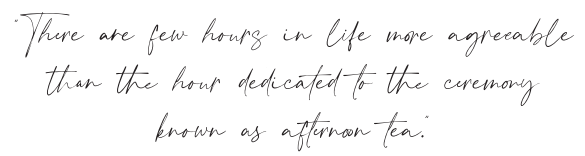 "There are few hours in life more agreeable
than the hour dedicated to the ceremony
known as afternoon tea."